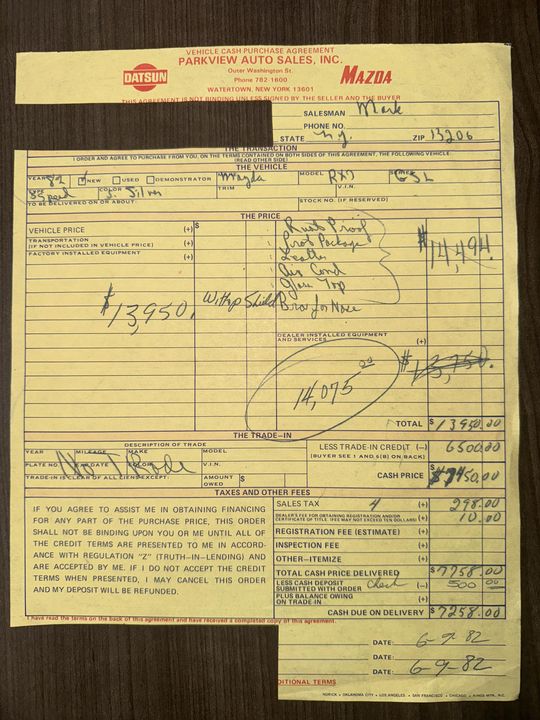 VEHICLE CASH PURCHASE AGREEMENT
PARKVIEW AUTO SALES, INC.
DATSUN
Outer Washington St.
MAZDA
Phone 782-1600
WATERTOWN, NEW YORK 13601
THIS AGREEMENT IS NOT BINDING UNLESS SIGNED BY THE SELLER AND THE BUYER
SALESMAN Mark
PHONE NO.
STATE N.Y. ZIP 13206
THE TRANSACTION
I ORDER AND AGREE TO PURCHASE FROM YOU, ON THE TERMS CONTAINED ON BOTH SIDES OF THIS AGREEMENT, THE FOLLOWING VEHICLE.
(READ OTHER SIDE)
THE VEHICLE
YEAR 82 NEW USED DEMONSTRATOR Mazda MODEL RX7 GSL
Speed COLOR Silver TRIM V.I.N.
TO BE DELIVERED ON OR ABOUT: STOCK NO. (IF RESERVED)
THE PRICE
VEHICLE PRICE (+) $ Rust Proof
TRANSPORTATION
(IF NOT INCLUDED IN VEHICLE PRICE) (+) Prot Package $14,494.
FACTORY INSTALLED EQUIPMENT (+) Leather
Air Cond
Glass Top
$13,950. Bra for Nose
DEALER INSTALLED EQUIPMENT
AND SERVICES (+)
14,075 00 $13,750.
TOTAL $13950.00
THE TRADE-IN
DESCRIPTION OF TRADE LESS TRADE-IN CREDIT (–) 6500.00
YEAR MILEAGE MAKE MODEL (BUYER SEE 1 AND 6(B) ON BACK)
PLATE NO. EXP. DATE COLOR V.I.N. CASH PRICE $7450.00
No Trade
TRADE-IN IS CLEAR OF ALL LIENS EXCEPT: AMOUNT OWED $
TAXES AND OTHER FEES
SALES TAX 4 (+) 298.00
DEALER'S FEE FOR OBTAINING REGISTRATION AND/OR
CERTIFICATE OF TITLE (FEE MAY NOT EXCEED TEN DOLLARS) (+) 10.00
REGISTRATION FEE (ESTIMATE) (+)
INSPECTION FEE (+)
OTHER–ITEMIZE (+)
TOTAL CASH PRICE DELIVERED $7758.00
LESS CASH DEPOSIT
SUBMITTED WITH ORDER Check (–) 500 00
PLUS BALANCE OWING
ON TRADE-IN (+)
CASH DUE ON DELIVERY $7258.00
IF YOU AGREE TO ASSIST ME IN OBTAINING FINANCING
FOR ANY PART OF THE PURCHASE PRICE, THIS ORDER
SHALL NOT BE BINDING UPON YOU OR ME UNTIL ALL OF
THE CREDIT TERMS ARE PRESENTED TO ME IN ACCORD-
ANCE WITH REGULATION "Z" (TRUTH-IN-LENDING) AND
ARE ACCEPTED BY ME. IF I DO NOT ACCEPT THE CREDIT
TERMS WHEN PRESENTED, I MAY CANCEL THIS ORDER
AND MY DEPOSIT WILL BE REFUNDED.
I have read the terms on the back of this agreement and have received a completed copy of this agreement.
DATE: 6-9-82
DATE:
DATE: 6-9-82
DITIONAL TERMS
NORICK • OKLAHOMA CITY • LOS ANGELES • SAN FRANCISCO • CHICAGO • KINGS MTN., N.C.